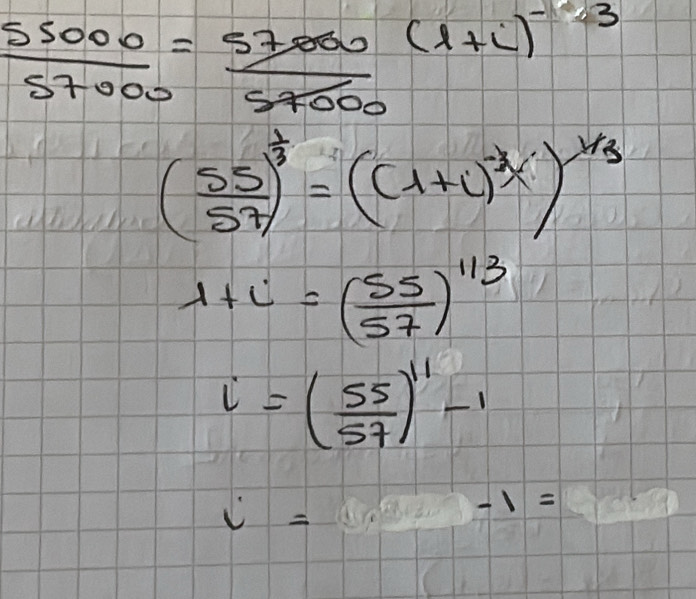 55000/57000 = 57000/57000 (1+i)^-3
(55/57)^1/3 = ((1+i)^-3)^-1/3
1+i = (55/57)^1/3
i = (55/57)^11 -1
i = -1 =